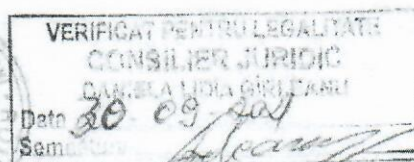 VERIFICAT PENTRU LEGALITATE
CONSILIER JURIDIC
DANIELA LIDIA GÎRLEANU
Data 30 09 2021